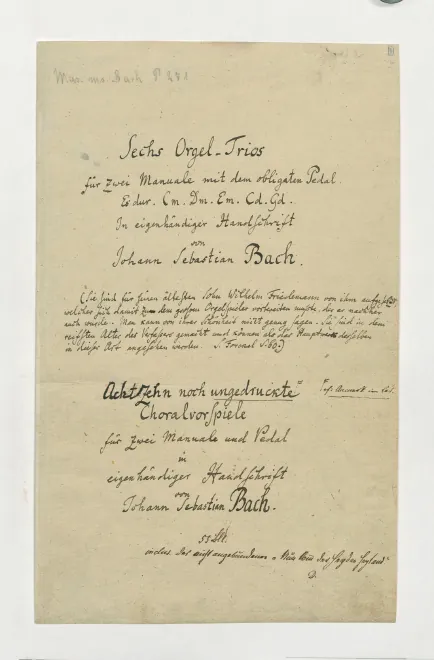 Mus. ms. Bach P 271
Sechs Orgel-Trios
für zwei Manuale mit dem obligaten Pedal.
Es dur. Cm. Dm. Em. Cd. Gd.
In eigenhändiger Handschrift
von
Johann Sebastian Bach.
(Sie sind für seinen ältesten Sohn Wilhelm Friedemann von ihm aufgesetzt
welcher sich damit zu dem großen Orgelspieler vorbereiten mußte, der er nachher
auch wurde. Man kann von ihrer Schönheit nicht genug sagen. Sie sind in dem
reifsten Alter des Verfassers gemacht und können als das Hauptwerk desselben
in dieser Art angesehen werden. S. Forkel S. 60.)
Achtzehn noch ungedruckte
Choralvorspiele
für zwei Manuale und Pedal
in
eigenhändiger Handschrift
von
Johann Sebastian Bach.
53 Bll.